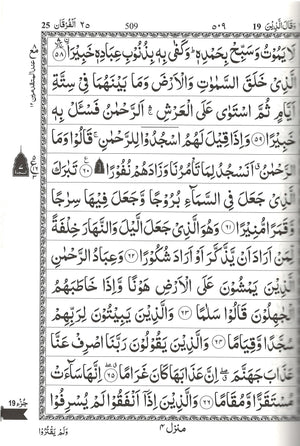 25 الفرقان ٢٥ 509 ٥٠٩ وقال الذين ١٩ 19
لَا يَمُوْتُ وَسَبِّحْ بِحَمْدِهٖ ؕ وَكَفٰى بِهٖ بِذُنُوْبِ عِبَادِهٖ خَبِيْرًا ۟ۙ ﴿۵۸﴾
الَّذِىْ خَلَقَ السَّمٰوٰتِ وَالْاَرْضَ وَمَا بَيْنَهُمَا فِىْ سِتَّةِ
اَيَّامٍ ثُمَّ اسْتَوٰى عَلَى الْعَرْشِ ۛۚ اَلرَّحْمٰنُ فَسْـَٔلْ بِهٖ
خَبِيْرًا ﴿۵۹﴾ وَاِذَا قِيْلَ لَهُمُ اسْجُدُوْا لِلرَّحْمٰنِ ۚ قَالُوْا وَمَا
الرَّحْمٰنُ ۗ اَنَسْجُدُ لِمَا تَاْمُرُنَا وَزَادَهُمْ نُفُوْرًا ﴿۶۰﴾ تَبٰرَكَ
الَّذِىْ جَعَلَ فِى السَّمَآءِ بُرُوْجًا وَّجَعَلَ فِيْهَا سِرٰجًا
وَّقَمَرًا مُّنِيْرًا ﴿۶۱﴾ وَهُوَ الَّذِىْ جَعَلَ الَّيْلَ وَالنَّهَارَ خِلْفَةً
لِّمَنْ اَرَادَ اَنْ يَّذَّكَّرَ اَوْ اَرَادَ شُكُوْرًا ﴿۶۲﴾ وَعِبَادُ الرَّحْمٰنِ
الَّذِيْنَ يَمْشُوْنَ عَلَى الْاَرْضِ هَوْنًا وَّاِذَا خَاطَبَهُمُ
الْجٰهِلُوْنَ قَالُوْا سَلٰمًا ﴿۶۳﴾ وَالَّذِيْنَ يَبِيْتُوْنَ لِرَبِّهِمْ
سُجَّدًا وَّقِيَامًا ﴿۶۴﴾ وَالَّذِيْنَ يَقُوْلُوْنَ رَبَّنَا اصْرِفْ عَنَّا
عَذَابَ جَهَنَّمَ ۖ اِنَّ عَذَابَهَا كَانَ غَرَامًا ﴿۶۵﴾ اِنَّهَا سَآءَتْ
مُسْتَقَرًّا وَّمُقَامًا ﴿۶۶﴾ وَالَّذِيْنَ اِذَاۤ اَنْفَقُوْا لَمْ يُسْرِفُوْا
جُزْء 19
منزل ٤
وَلَمْ يَقْتُرُوْا